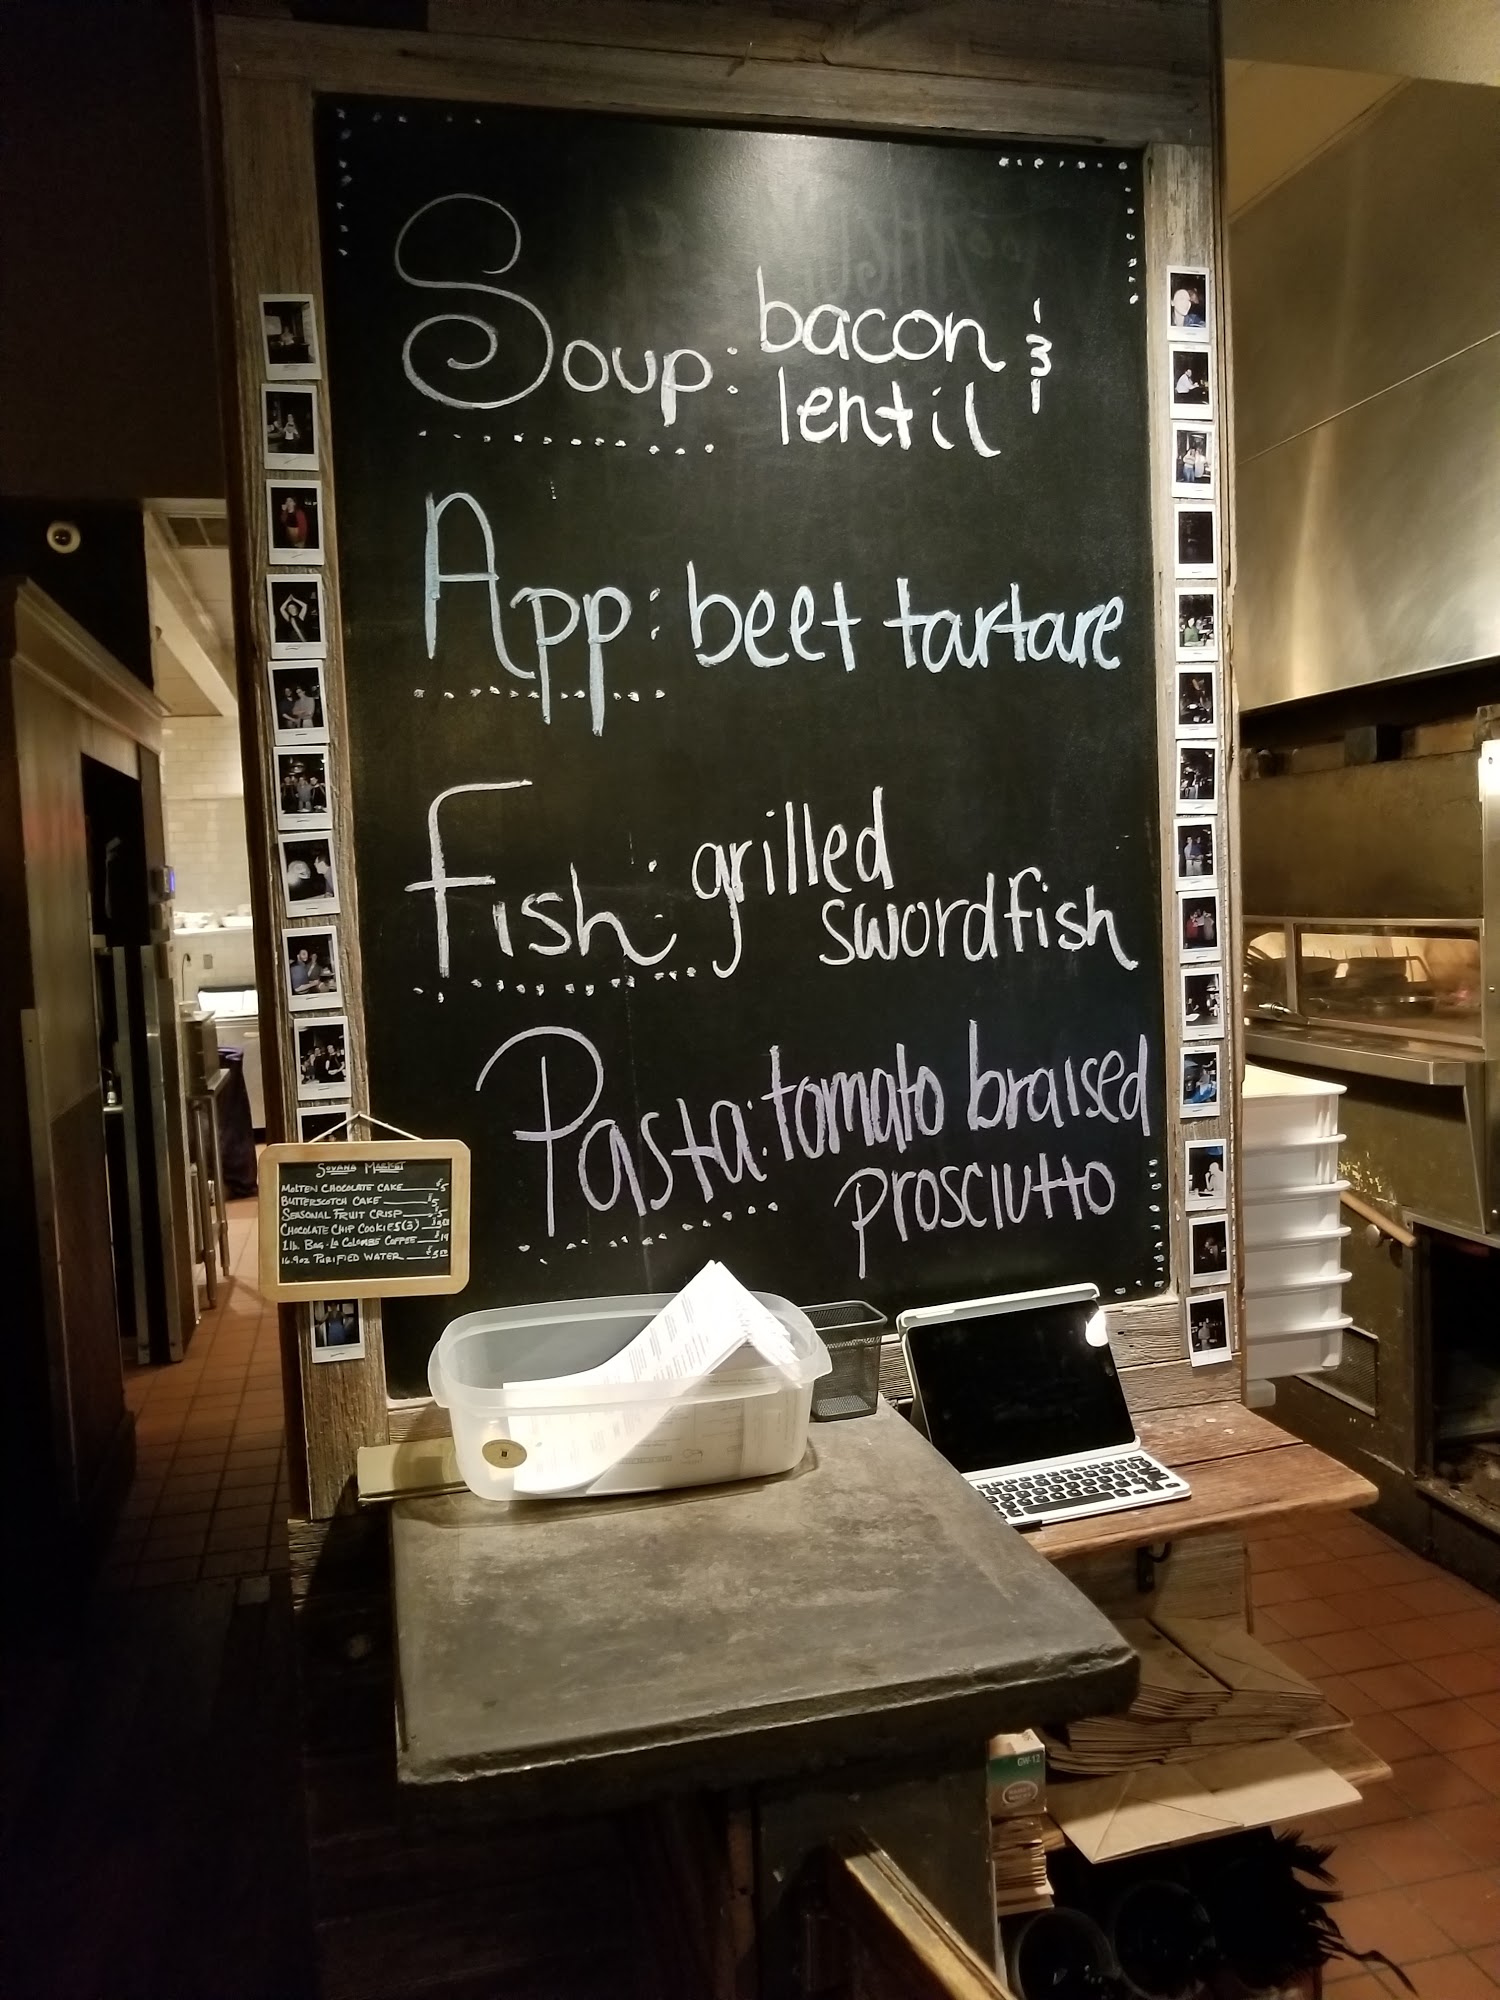 Soup: bacon &
lentil
App: beet tartare
Fish: grilled
swordfish
Pasta: tomato braised
prosciutto
SOVANA MARKET
MOLTEN CHOCOLATE CAKE $5
BUTTERSCOTCH CAKE $5
SEASONAL FRUIT CRISP $5
CHOCOLATE CHIP COOKIES (3)
1 lb. BAG - LA COLOMBE COFFEE $14
16.9oz PURIFIED WATER
GW-12